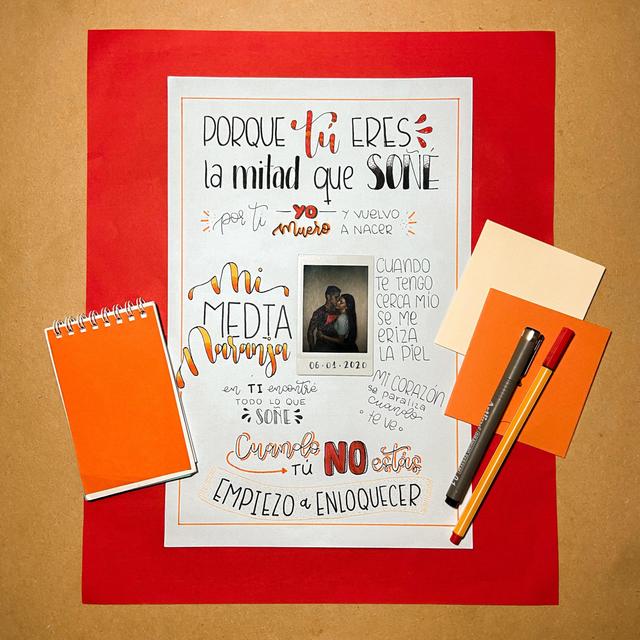 PORQUE tú ERES
la mitad que SOÑÉ
por ti YO muero Y VUELVO A NACER
Mi
MEDIA
Naranja
CUANDO
TE TENGO
CERCA MÍO
SE ME
ERIZA
LA PIEL
06·01·2020
en TI encontré
TODO LO QUE
SOÑÉ
MI CORAZÓN
se paraliza
cuando
te ve
Cuando TÚ NO estás
EMPIEZO a ENLOQUECER